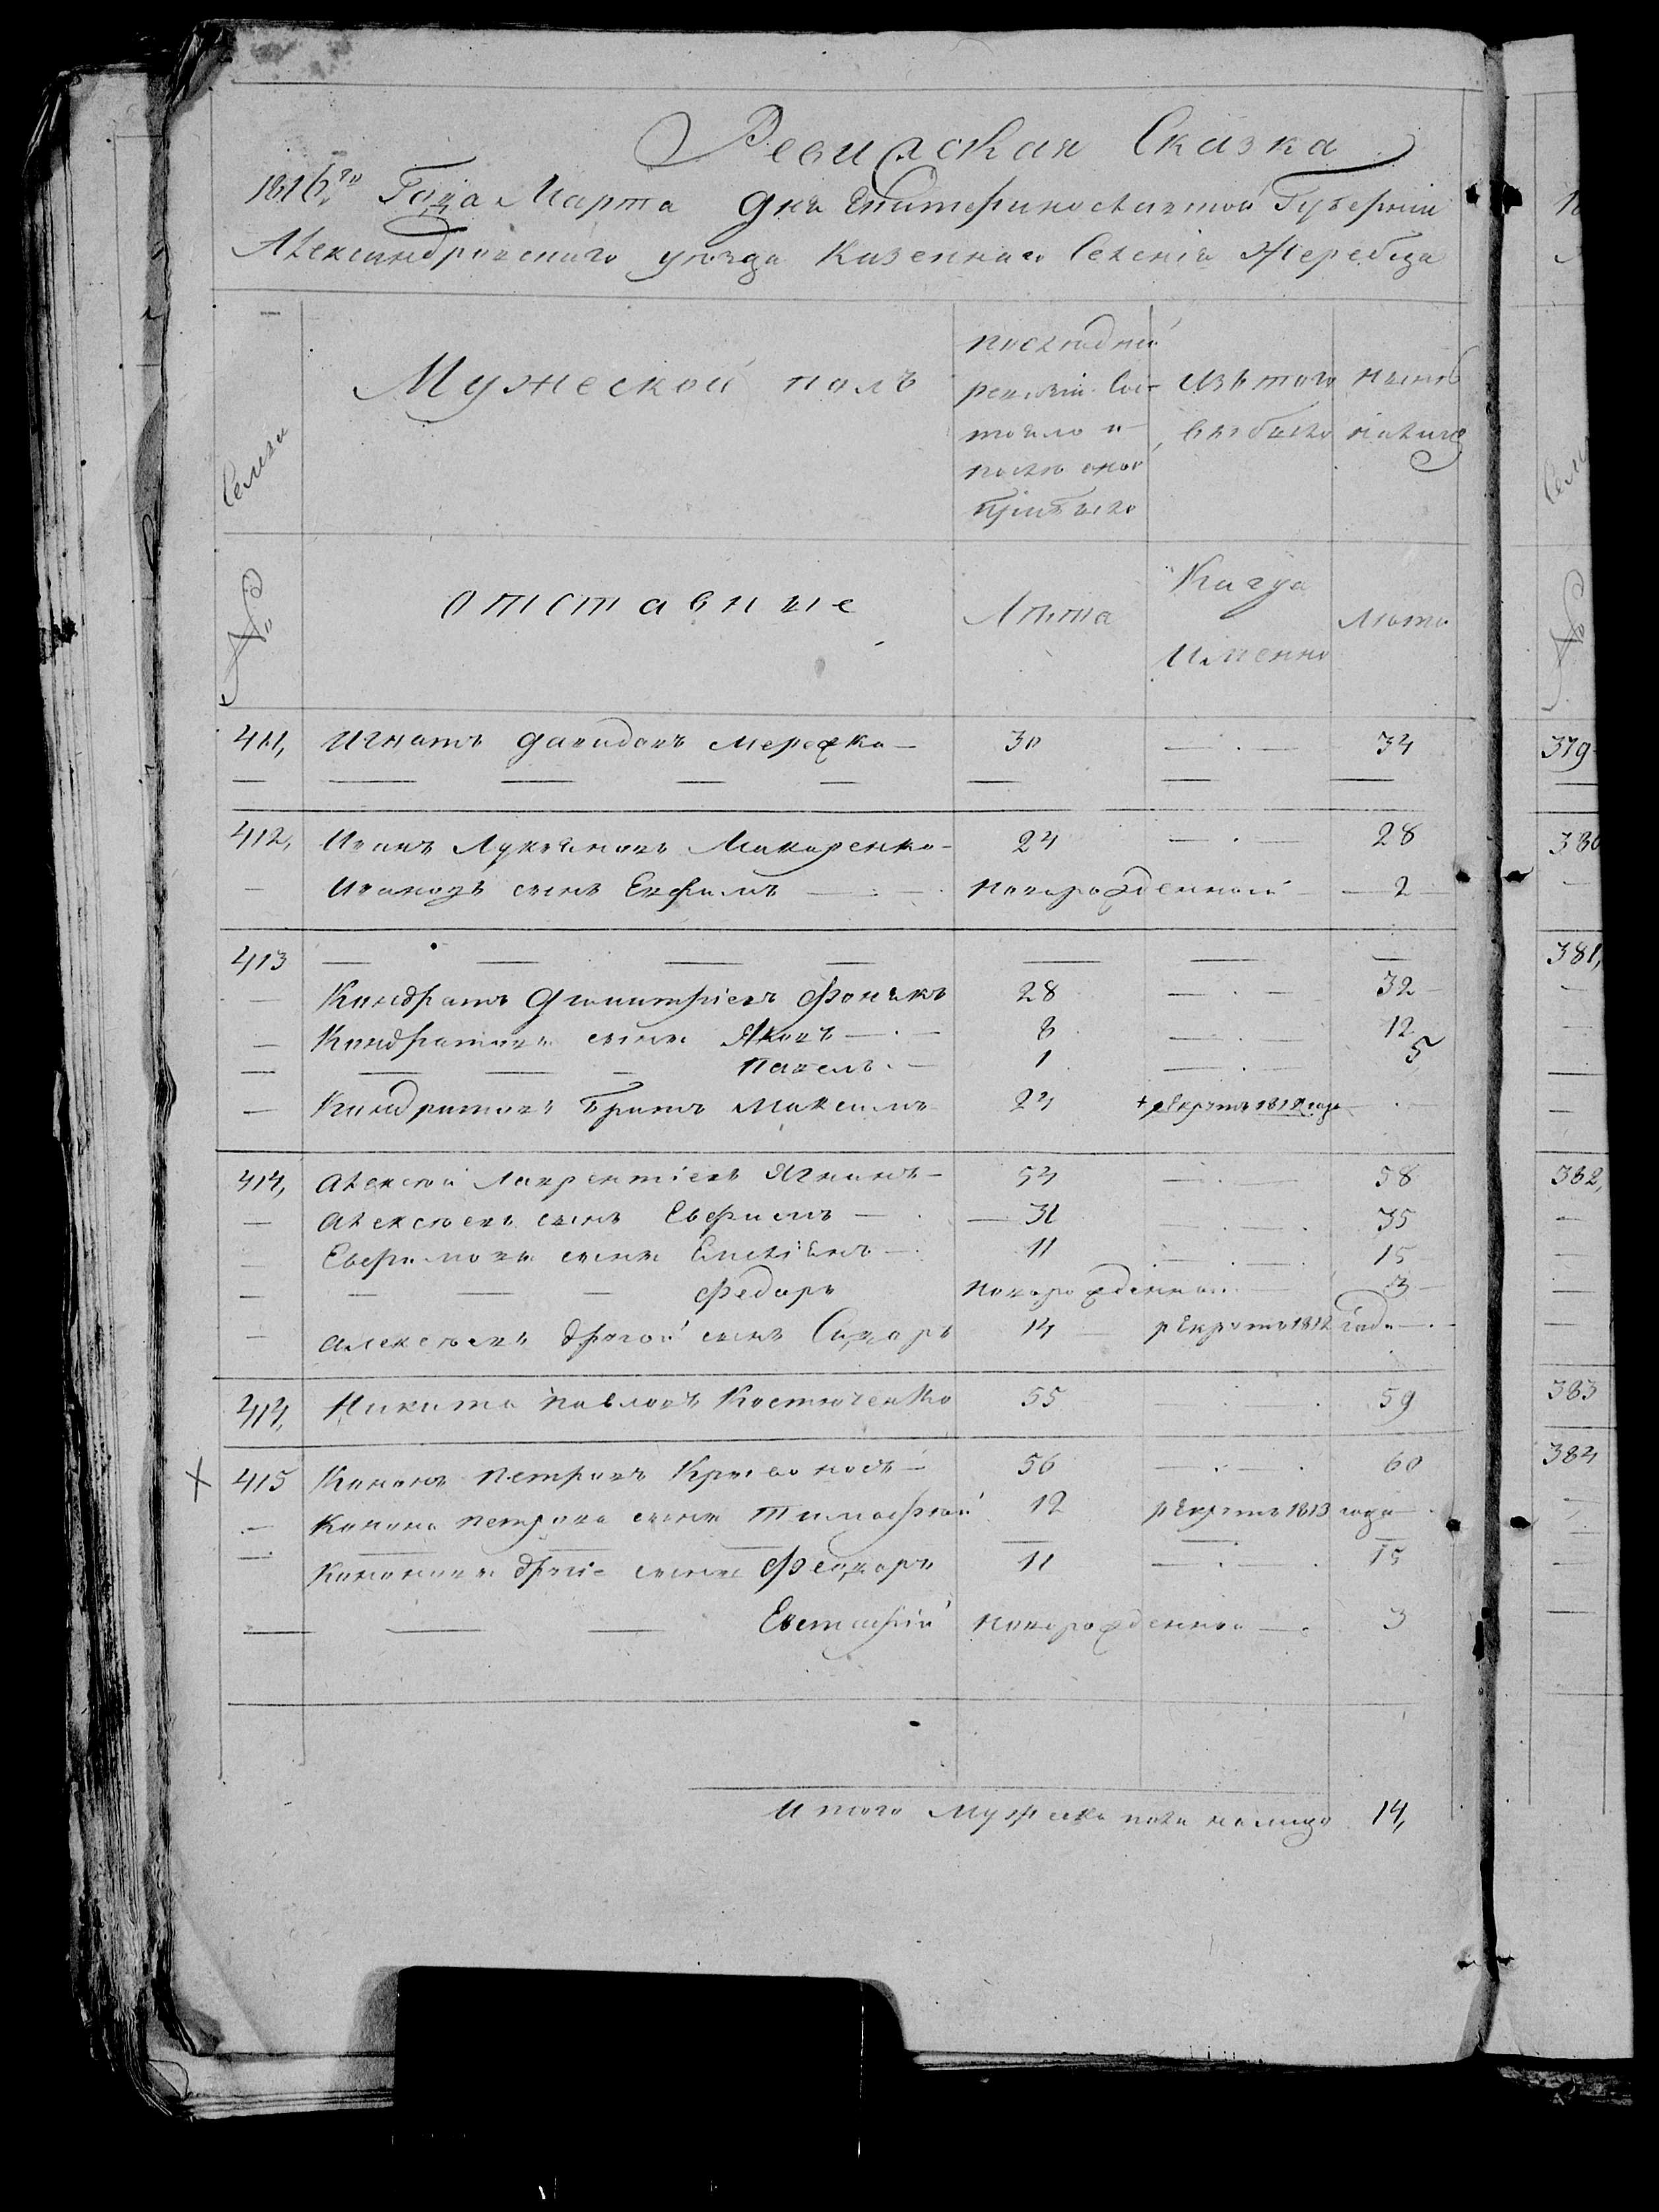 Ревижская Сказка
1816го Года Марта дня Екатеринославской Губернiи
Александровского уезда Казенного Селенiя Жеребца
Семьи
Мужеской полъ
последней
ревизiи сос-
тояло и
после оной
прибыло
Изъ того
выбыло
ныне
налицо
№
отставные
Лѣта
Когда
Именно
Лѣта
411, Игнатъ Давидовъ Мережко 30 34
412, Иванъ Лукьяновъ Макаренко 24 28
Ивановъ сынъ Евфимъ новорожденной 2
413
Кондратъ Дмитрiевъ 28 32
Кондратовы сыны Яковъ 8 12
Павелъ 1 5
Кондратовъ братъ Максимъ 24 + рекрутъ 1812 года
414, Алексѣй Лаврентiевъ 54 58
Алексѣевъ сынъ Евфимъ 31 35
Евфимовы сыны Емелiянъ 11 15
Федоръ новорожденной 3
Алексѣевъ другой сынъ Сидоръ 14 рекрутъ 1812 года
414, Никита Павловъ Костюченко 55 59
415 Кононъ Петровъ Кривоносъ 56 60
Конона Петрова сыны Тимофѣй 12 рекрутъ 1813 года
Кононовы другiе сыны Феодоръ 11 15
Евстафiй новорожденной 3
Итого Мужеска пола налицо 14,
379
380
381,
382,
383
384